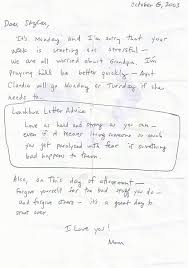 October 6, 2003
Dear Skyler,
It's Monday, and I'm sorry that your
week is starting out stressful —
we are all worried about Grandpa. I'm
praying he'll be better quickly — Aunt
Claudia will go Monday or Tuesday if she
needs to.
Lunchbox Letter Advice
Love as hard and strong as you can —
even if it means loving someone so much
you get paralyzed with fear if something
bad happens to them.
Also, on this day of atonement —
forgive yourself for the bad stuff you do —
and forgive others — it's a great day to
start over.
I love you!
Mom